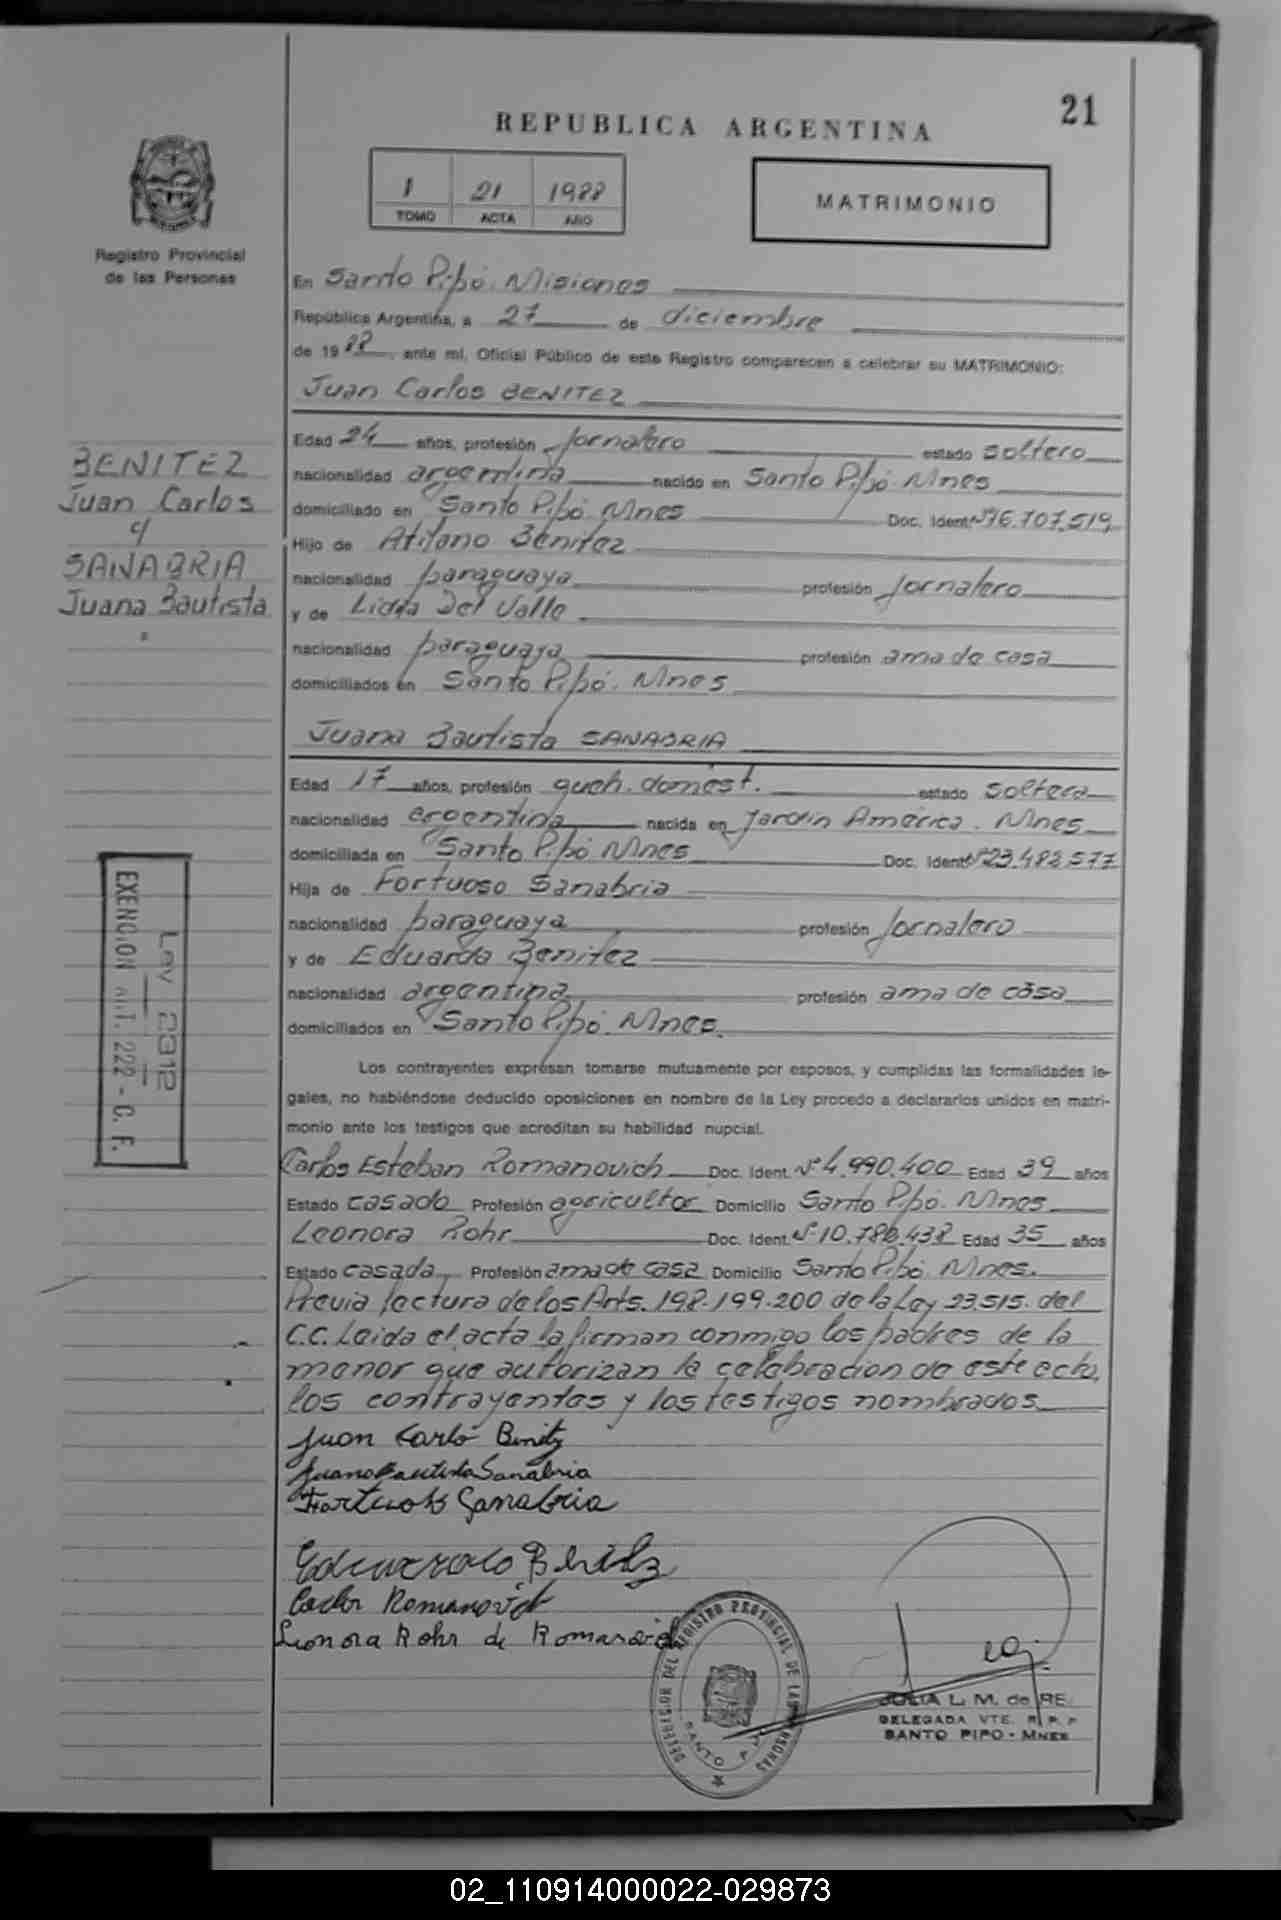 21
REPUBLICA ARGENTINA
1 21 1988
TOMO ACTA AÑO
MATRIMONIO
Registro Provincial
de las Personas
En Santo Pipó. Misiones
República Argentina, a 27 de diciembre
de 1988, ante mí, Oficial Público de este Registro comparecen a celebrar su MATRIMONIO:
Juan Carlos BENITEZ
BENITEZ
Juan Carlos
c/
SANABRIA
Juana Bautista
Edad 24 años, profesión Jornalero estado soltero
nacionalidad argentina nacido en Santo Pipó. Mnes
domiciliado en Santo Pipó. Mnes Doc. Ident. Nº 16.707.519
Hijo de Atilano Benitez
nacionalidad paraguaya profesión Jornalero
y de Lidia Del Valle
nacionalidad paraguaya profesión ama de casa
domiciliados en Santo Pipó. Mnes
Juana Bautista SANABRIA
Edad 17 años, profesión queh. domést. estado soltera
nacionalidad argentina nacida en Jardín América. Mnes
domiciliada en Santo Pipó Mnes Doc. Ident. Nº 23.482.577
Hija de Fortuoso Sanabria
nacionalidad paraguaya profesión Jornalero
y de Eduarda Benitez
nacionalidad argentina profesión ama de casa
domiciliados en Santo Pipó. Mnes.
Ley 2312
EXENCION ART. 222 - C. F.
Los contrayentes expresan tomarse mutuamente por esposos, y cumplidas las formalidades le-
gales, no habiéndose deducido oposiciones en nombre de la Ley procedo a declararlos unidos en matri-
monio ante los testigos que acreditan su habilidad nupcial.
Carlos Esteban Romanovich Doc. Ident. Nº 4.990.400 Edad 39 años
Estado casado Profesión agricultor Domicilio Santo Pipó. Mnes
Leonora Rohr Doc. Ident. Nº 10.780.438 Edad 35 años
Estado casada Profesión ama de casa Domicilio Santo Pipó. Mnes.
Previa lectura de los Arts. 198-199-200 de la Ley 23.515. del
C.C. Leida el acta la firman conmigo los padres de la
menor que autorizan la celebracion de este acto,
los contrayentes y los testigos nombrados
Juan Carlo Benitz
Juana Bautista Sanabria
Sanabria
Romanovich
Leonora Rohr de Romanovich
DELEGACION DEL REGISTRO PROVINCIAL DE LAS PERSONAS
SANTO PIPO
JULIA L. M. de RE
DELEGADA VTE. R. P. P
SANTO PIPO - MNES
02_110914000022-029873